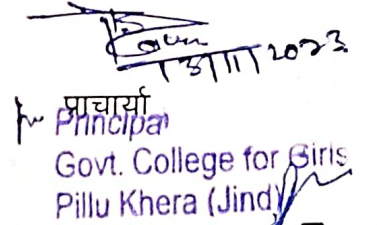 2023
प्राचार्या
for Principal
Govt. College for Girls
Pillu Khera (Jind)